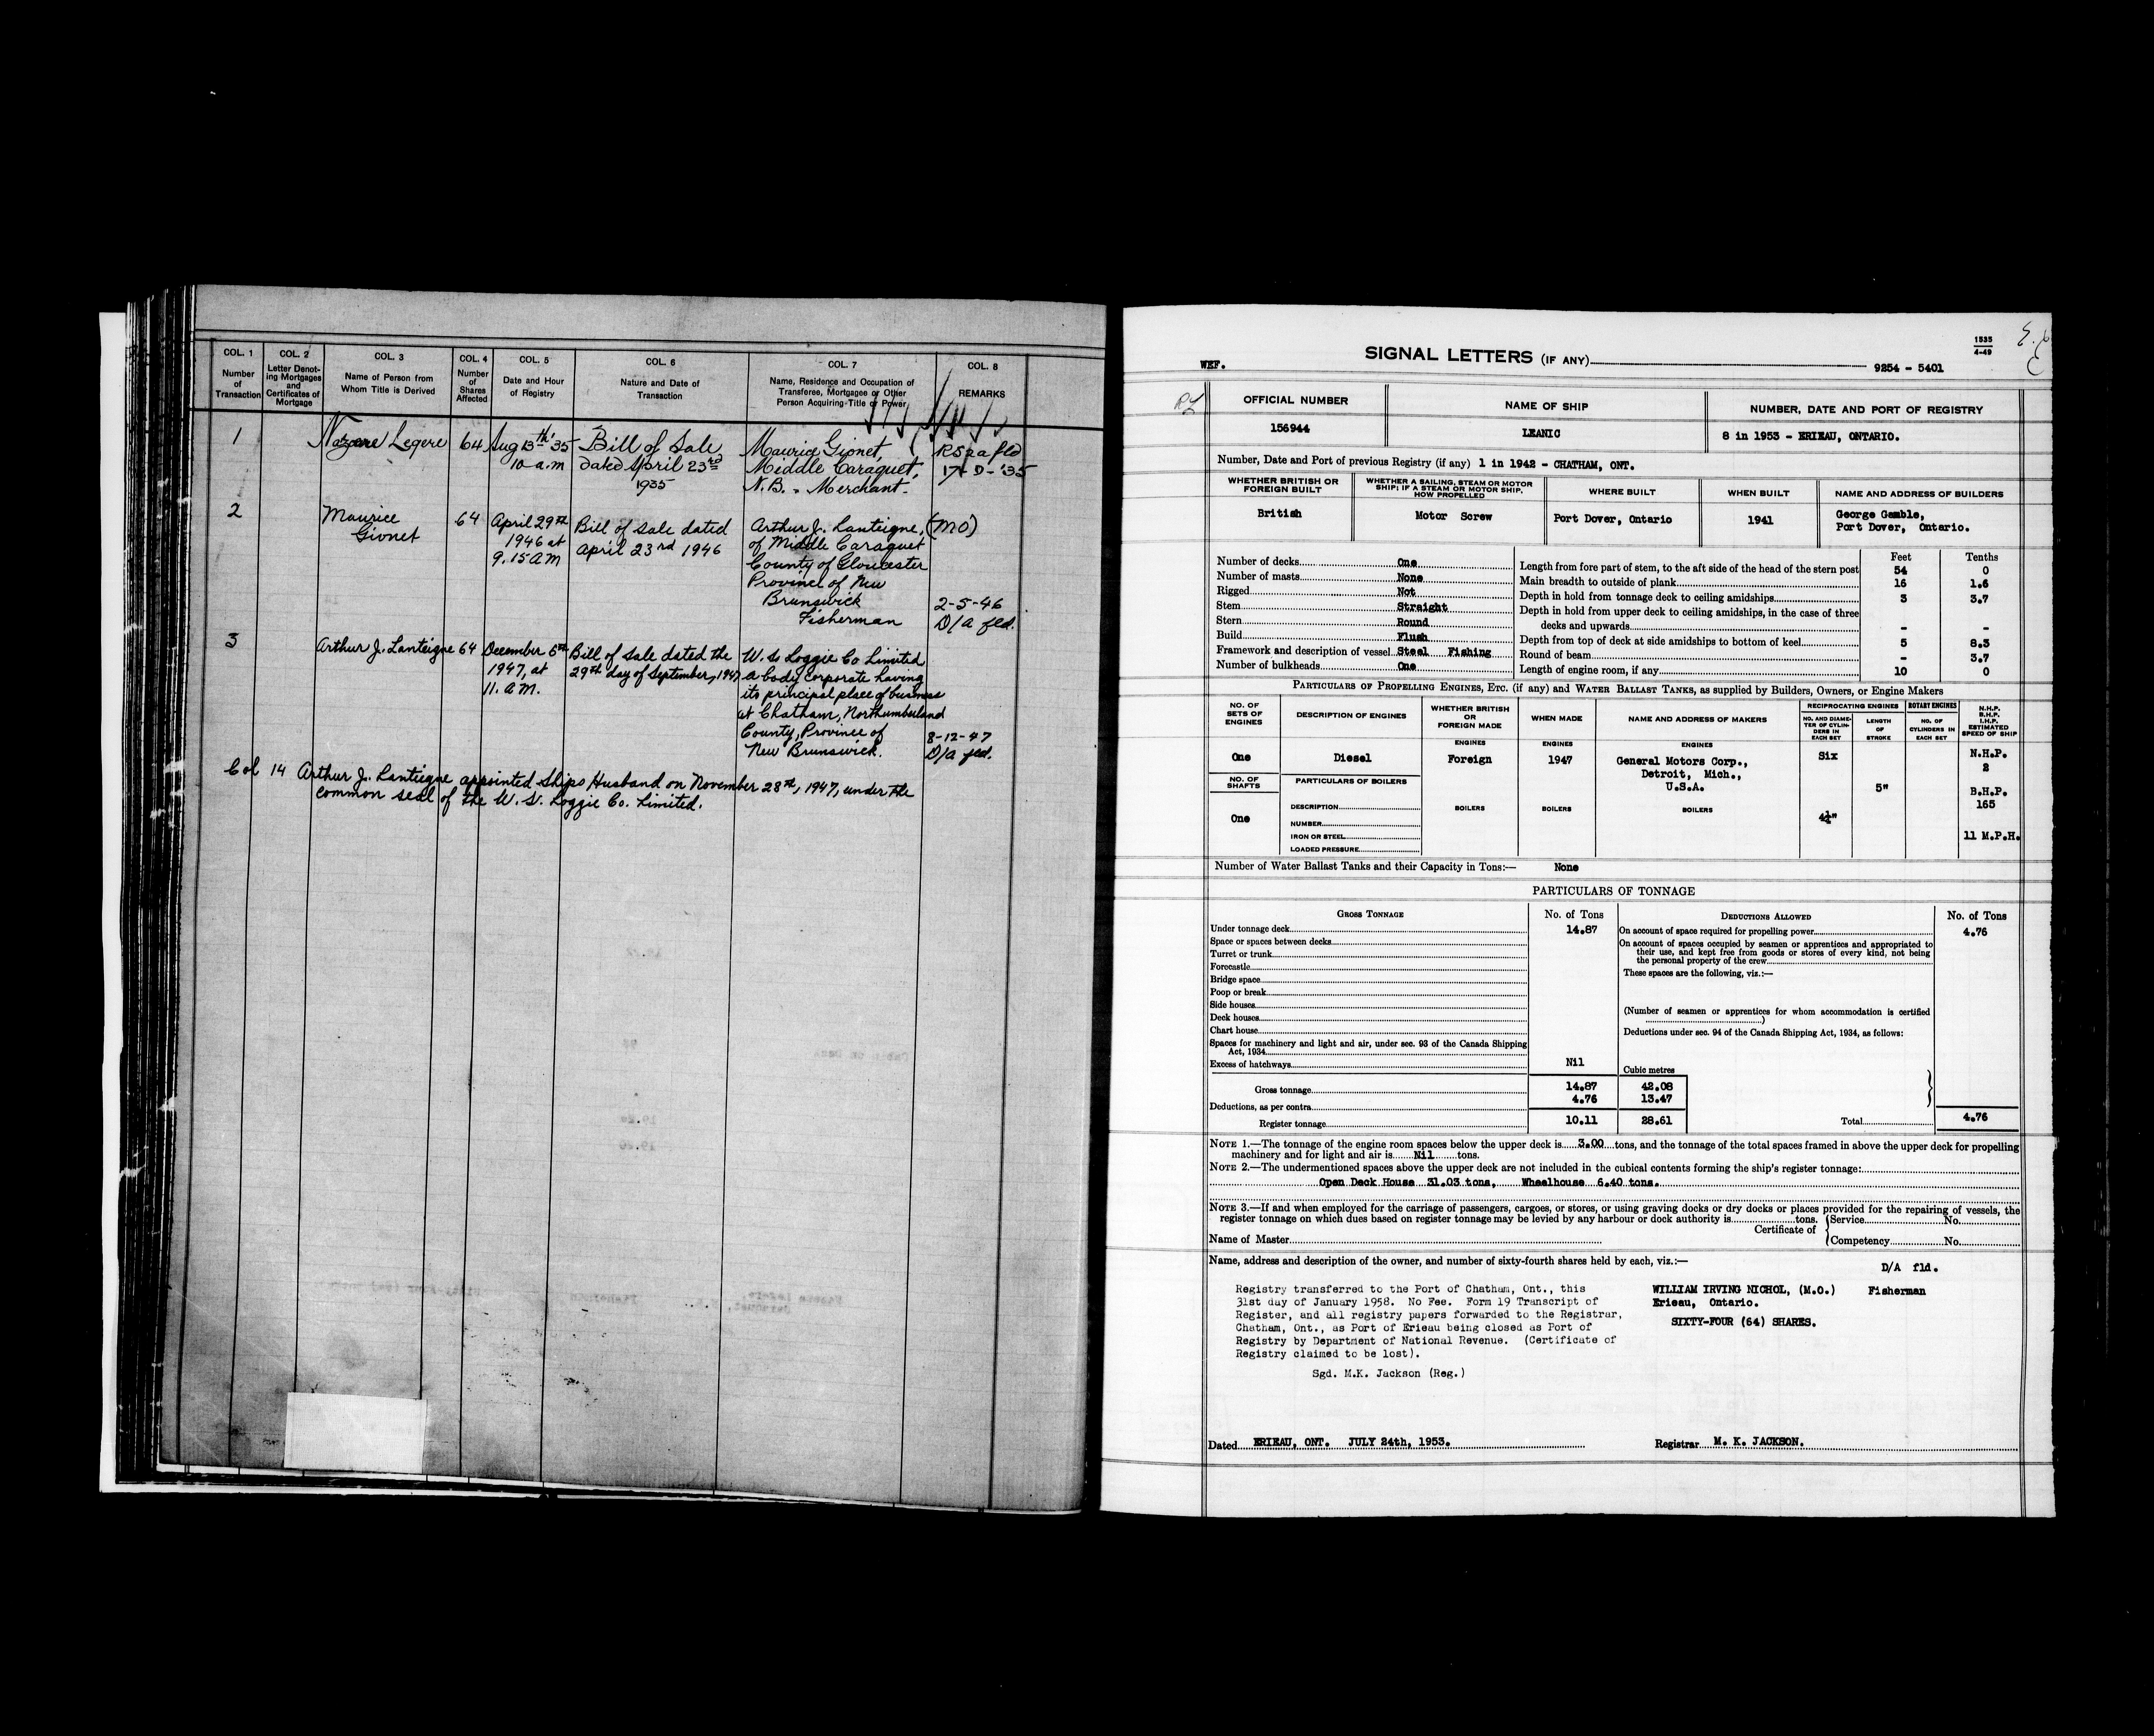 COL. 1 COL. 2 COL. 3 COL. 4 COL. 5 COL. 6 COL. 7 COL. 8
Number of Transaction
Letter Denoting Mortgages and Certificates of Mortgage
Name of Person from Whom Title is Derived
Number of Shares Affected
Date and Hour of Registry
Nature and Date of Transaction
Name, Residence and Occupation of Transferee, Mortgagee or Other Person Acquiring Title or Power
REMARKS
1 Nazaire Legere 64 Aug 13th '35 Bill of Sale Maurice Gionet, RS2a fld
10 a.m dated April 23rd Middle Caraquet, 17-D-'35
1935 N.B. - Merchant.
2 Maurice 64 April 29th Bill of sale dated Arthur J. Lanteigne, (MO)
Gionet 1946 at April 23rd 1946 of Middle Caraquet
9.15 AM County of Gloucester
Province of New
Brunswick 2-5-46
Fisherman D/A fld.
3 Arthur J. Lanteigne 64 December 5th Bill of sale dated the W. S. Loggie Co Limited
1947, at 29th day of September, 1947 a body corporate having
11. A.M. its principal place of business
at Chatham, Northumberland
County, Province of 8-12-47
New Brunswick. D/A fld.
Col 14 Arthur J. Lanteigne appointed Ships Husband on November 28th, 1947, under the
common seal of the W. S. Loggie Co. Limited.
1535
4-49
WEF. SIGNAL LETTERS (IF ANY) 9254 - 5401
OFFICIAL NUMBER NAME OF SHIP NUMBER, DATE AND PORT OF REGISTRY
156944 LEANIC 8 in 1953 - ERIEAU, ONTARIO.
Number, Date and Port of previous Registry (if any) 1 in 1942 - CHATHAM, ONT.
WHETHER BRITISH OR FOREIGN BUILT
WHETHER A SAILING, STEAM OR MOTOR SHIP; IF A STEAM OR MOTOR SHIP, HOW PROPELLED
WHERE BUILT WHEN BUILT NAME AND ADDRESS OF BUILDERS
British Motor Screw Port Dover, Ontario 1941 George Gamble,
Port Dover, Ontario.
Feet Tenths
Number of decks One
Number of masts None
Rigged Not
Stem Straight
Stern Round
Build Flush
Framework and description of vessel Steel Fishing
Number of bulkheads One
Length from fore part of stem, to the aft side of the head of the stern post 54 0
Main breadth to outside of plank 16 1.6
Depth in hold from tonnage deck to ceiling amidships 3 3.7
Depth in hold from upper deck to ceiling amidships, in the case of three
decks and upwards - -
Depth from top of deck at side amidships to bottom of keel 5 8.3
Round of beam - 3.7
Length of engine room, if any 10 0
PARTICULARS OF PROPELLING ENGINES, ETC. (if any) and WATER BALLAST TANKS, as supplied by Builders, Owners, or Engine Makers
NO. OF SETS OF ENGINES
DESCRIPTION OF ENGINES
WHETHER BRITISH OR FOREIGN MADE
WHEN MADE
NAME AND ADDRESS OF MAKERS
RECIPROCATING ENGINES
NO. AND DIAMETER OF CYLINDERS IN EACH SET
LENGTH OF STROKE
ROTARY ENGINES
NO. OF CYLINDERS IN EACH SET
N.H.P.
B.H.P.
I.H.P.
ESTIMATED SPEED OF SHIP
ENGINES ENGINES ENGINES
One Diesel Foreign 1947 General Motors Corp., Six N.H.P.
Detroit, Mich., 2
U.S.A. 5" B.H.P.
NO. OF SHAFTS PARTICULARS OF BOILERS
165
One DESCRIPTION BOILERS BOILERS BOILERS 4¼"
NUMBER
IRON OR STEEL 11 M.P.H.
LOADED PRESSURE
Number of Water Ballast Tanks and their Capacity in Tons:— None
PARTICULARS OF TONNAGE
GROSS TONNAGE No. of Tons DEDUCTIONS ALLOWED No. of Tons
Under tonnage deck 14.87
Space or spaces between decks
Turret or trunk
Forecastle
Bridge space
Poop or break
Side houses
Deck houses
Chart house
Spaces for machinery and light and air, under sec. 93 of the Canada Shipping
Act, 1934
Excess of hatchways Nil
On account of space required for propelling power 4.76
On account of spaces occupied by seamen or apprentices and appropriated to
their use, and kept free from goods or stores of every kind, not being
the personal property of the crew
These spaces are the following, viz.:—
(Number of seamen or apprentices for whom accommodation is certified
)
Deductions under sec. 94 of the Canada Shipping Act, 1934, as follows:
Cubic metres
Gross tonnage 14.87 42.08
Deductions, as per contra 4.76 13.47
Register tonnage 10.11 28.61 Total 4.76
NOTE 1.—The tonnage of the engine room spaces below the upper deck is 3.00 tons, and the tonnage of the total spaces framed in above the upper deck for propelling
machinery and for light and air is Nil tons.
NOTE 2.—The undermentioned spaces above the upper deck are not included in the cubical contents forming the ship's register tonnage:
Open Deck House 31.03 tons, Wheelhouse 6.40 tons.
NOTE 3.—If and when employed for the carriage of passengers, cargoes, or stores, or using graving docks or dry docks or places provided for the repairing of vessels, the
register tonnage on which dues based on register tonnage may be levied by any harbour or dock authority is tons.
Name of Master Certificate of Service No.
Competency No.
Name, address and description of the owner, and number of sixty-fourth shares held by each, viz.:—
D/A fld.
Registry transferred to the Port of Chatham, Ont., this
31st day of January 1958. No Fee. Form 19 Transcript of
Register, and all registry papers forwarded to the Registrar,
Chatham, Ont., as Port of Erieau being closed as Port of
Registry by Department of National Revenue. (Certificate of
Registry claimed to be lost).
Sgd. M.K. Jackson (Reg.)
WILLIAM IRVING NICHOL, (M.O.) Fisherman
Erieau, Ontario.
SIXTY-FOUR (64) SHARES.
Dated ERIEAU, ONT. JULY 24th, 1953. Registrar M. K. JACKSON.